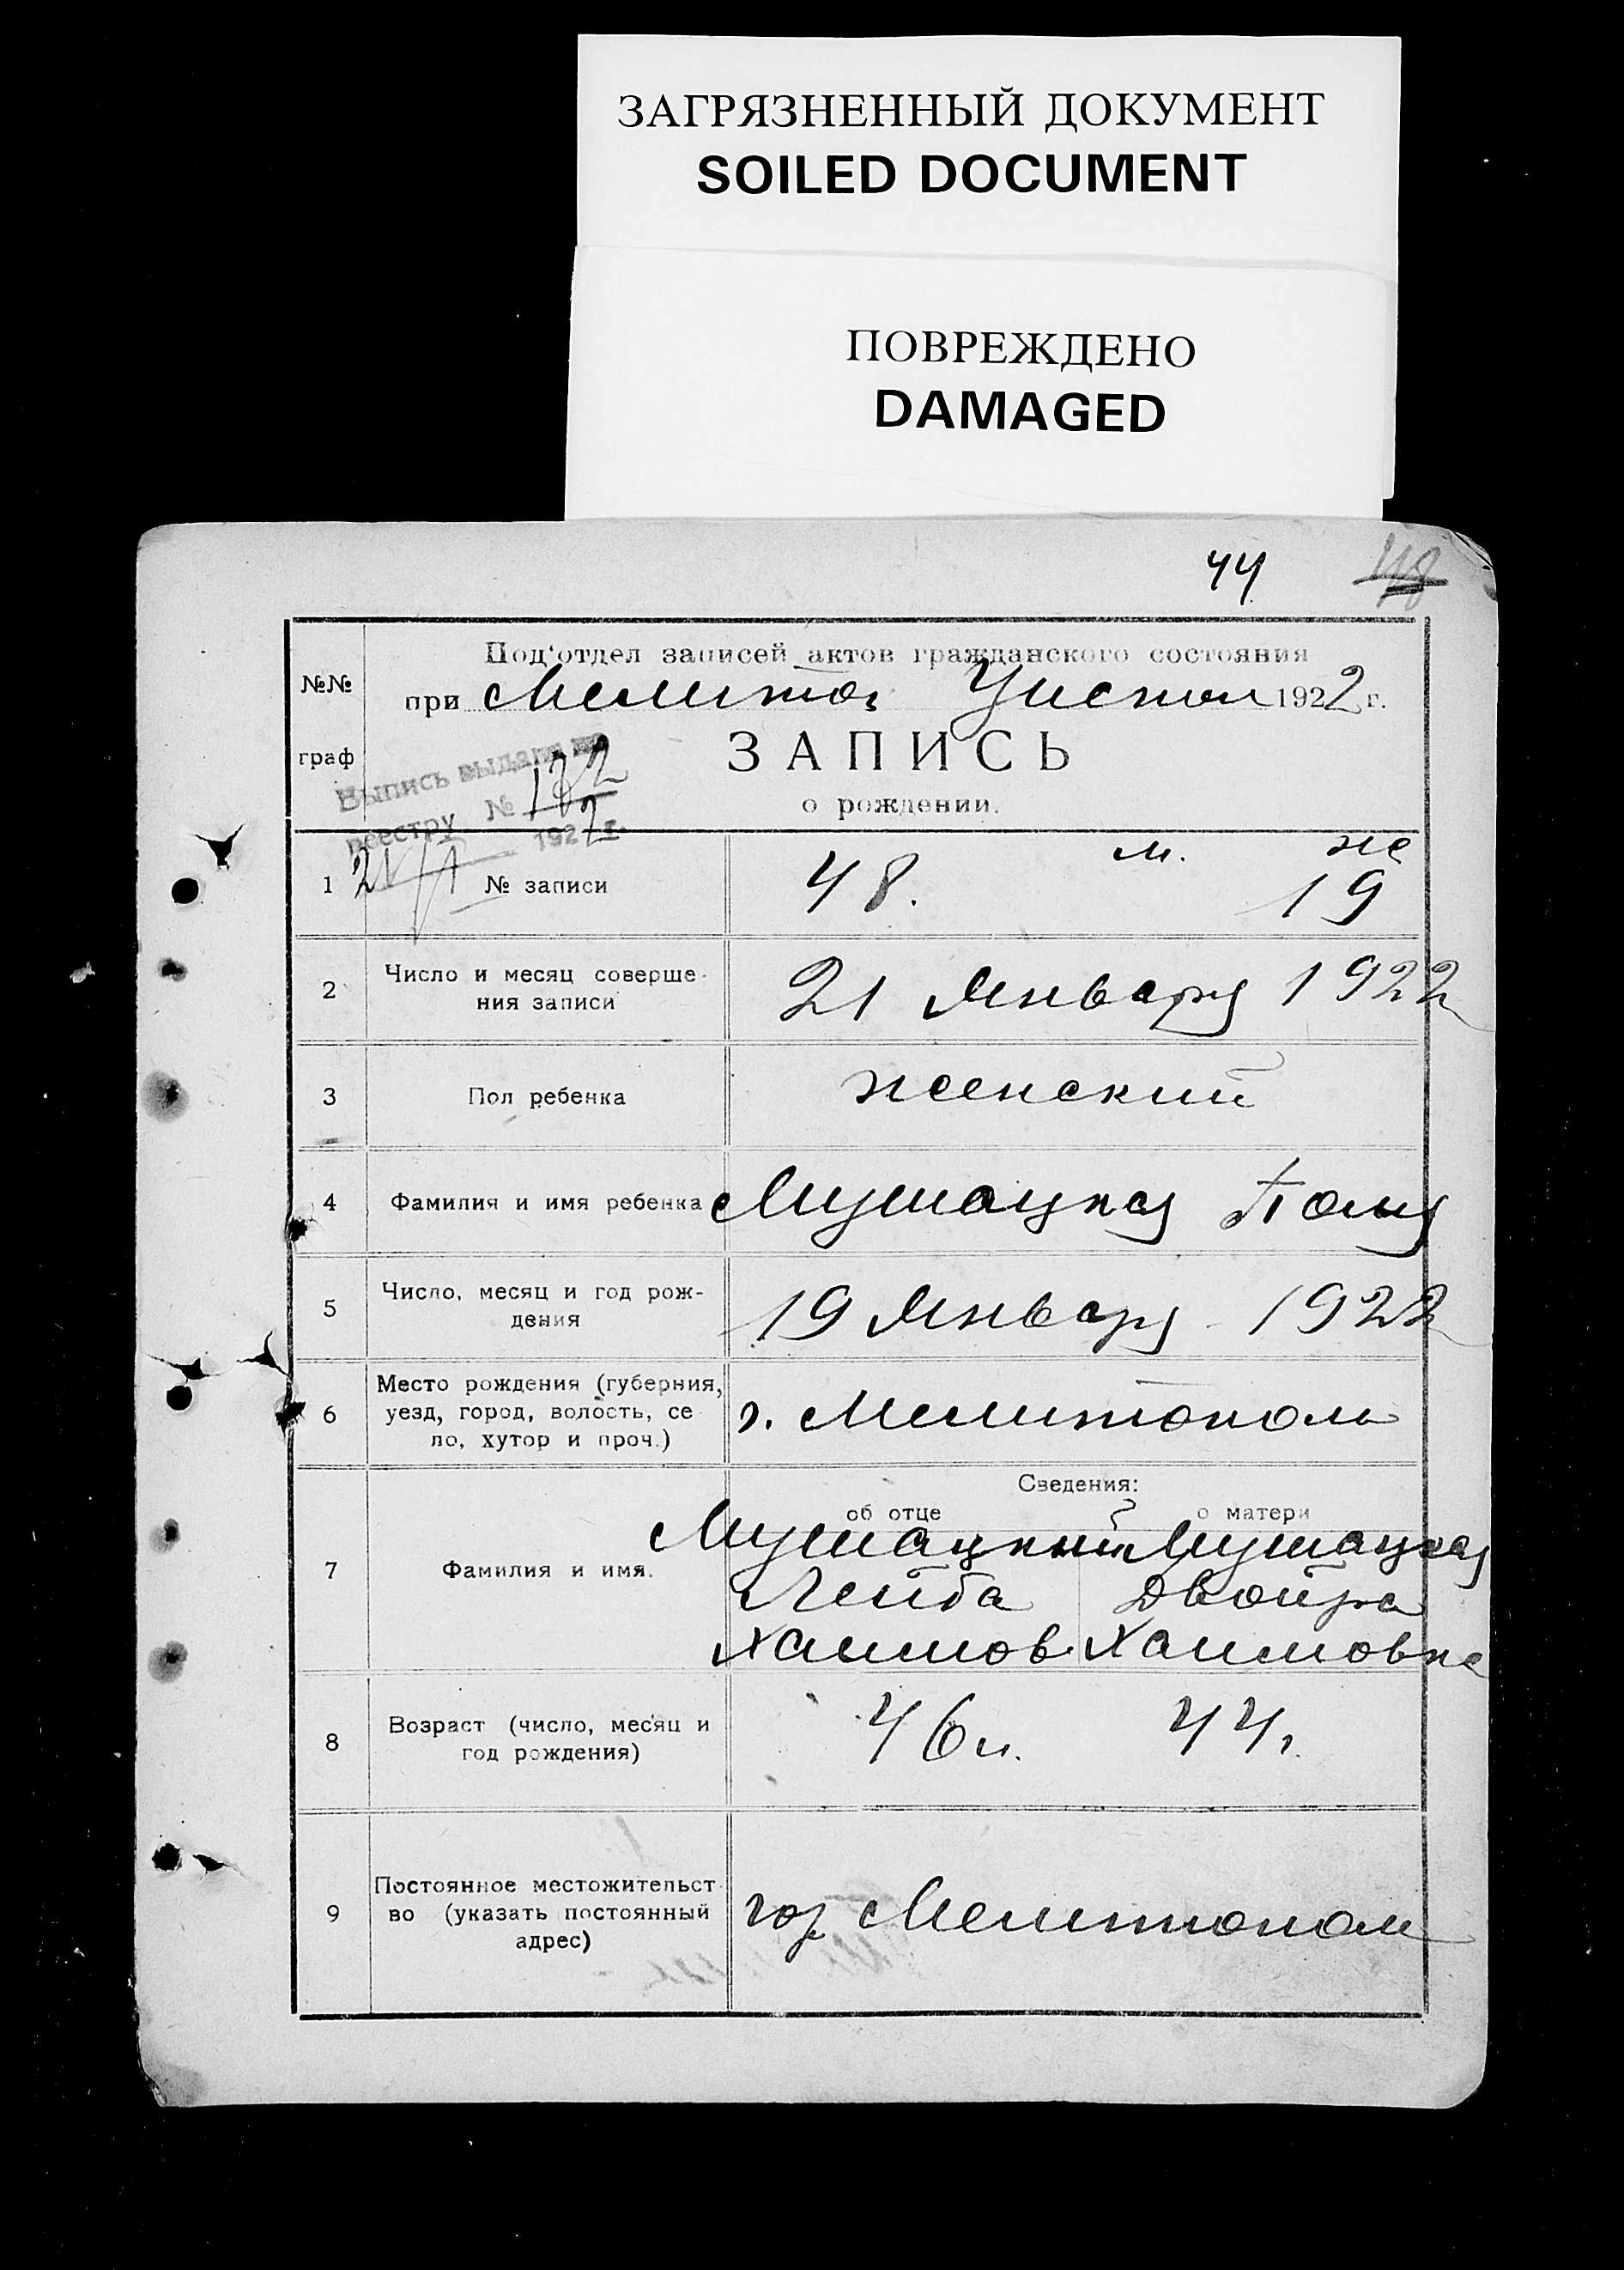 ЗАГРЯЗНЕННЫЙ ДОКУМЕНТ
SOILED DOCUMENT
ПОВРЕЖДЕНО
DAMAGED
44 48
№№ граф
Под'отдел записей актов гражданского состояния
при Мелитоп Уиспол 1922 г.
ЗАПИСЬ
о рождении.
Выпись выдана по
реестру № 132
1922 г.
21/I
м. же
1 № записи 48. 19
2 Число и месяц соверше-
ния записи 21 Января 1922
3 Пол ребенка женский
4 Фамилия и имя ребенка Мушацкая Поля
5 Число, месяц и год рож-
дения 19 Января 1922
6 Место рождения (губерния,
уезд, город, волость, се-
ло, хутор и проч.) г. Мелитополь
Сведения:
об отце о матери
7 Фамилия и имя. Мушацкий Мушацкая
Лейба Двойра
Хаимов Хаимовна
8 Возраст (число, месяц и
год рождения) 46 л. 44 г.
9 Постоянное местожительст-
во (указать постоянный
адрес) гор Мелитополь